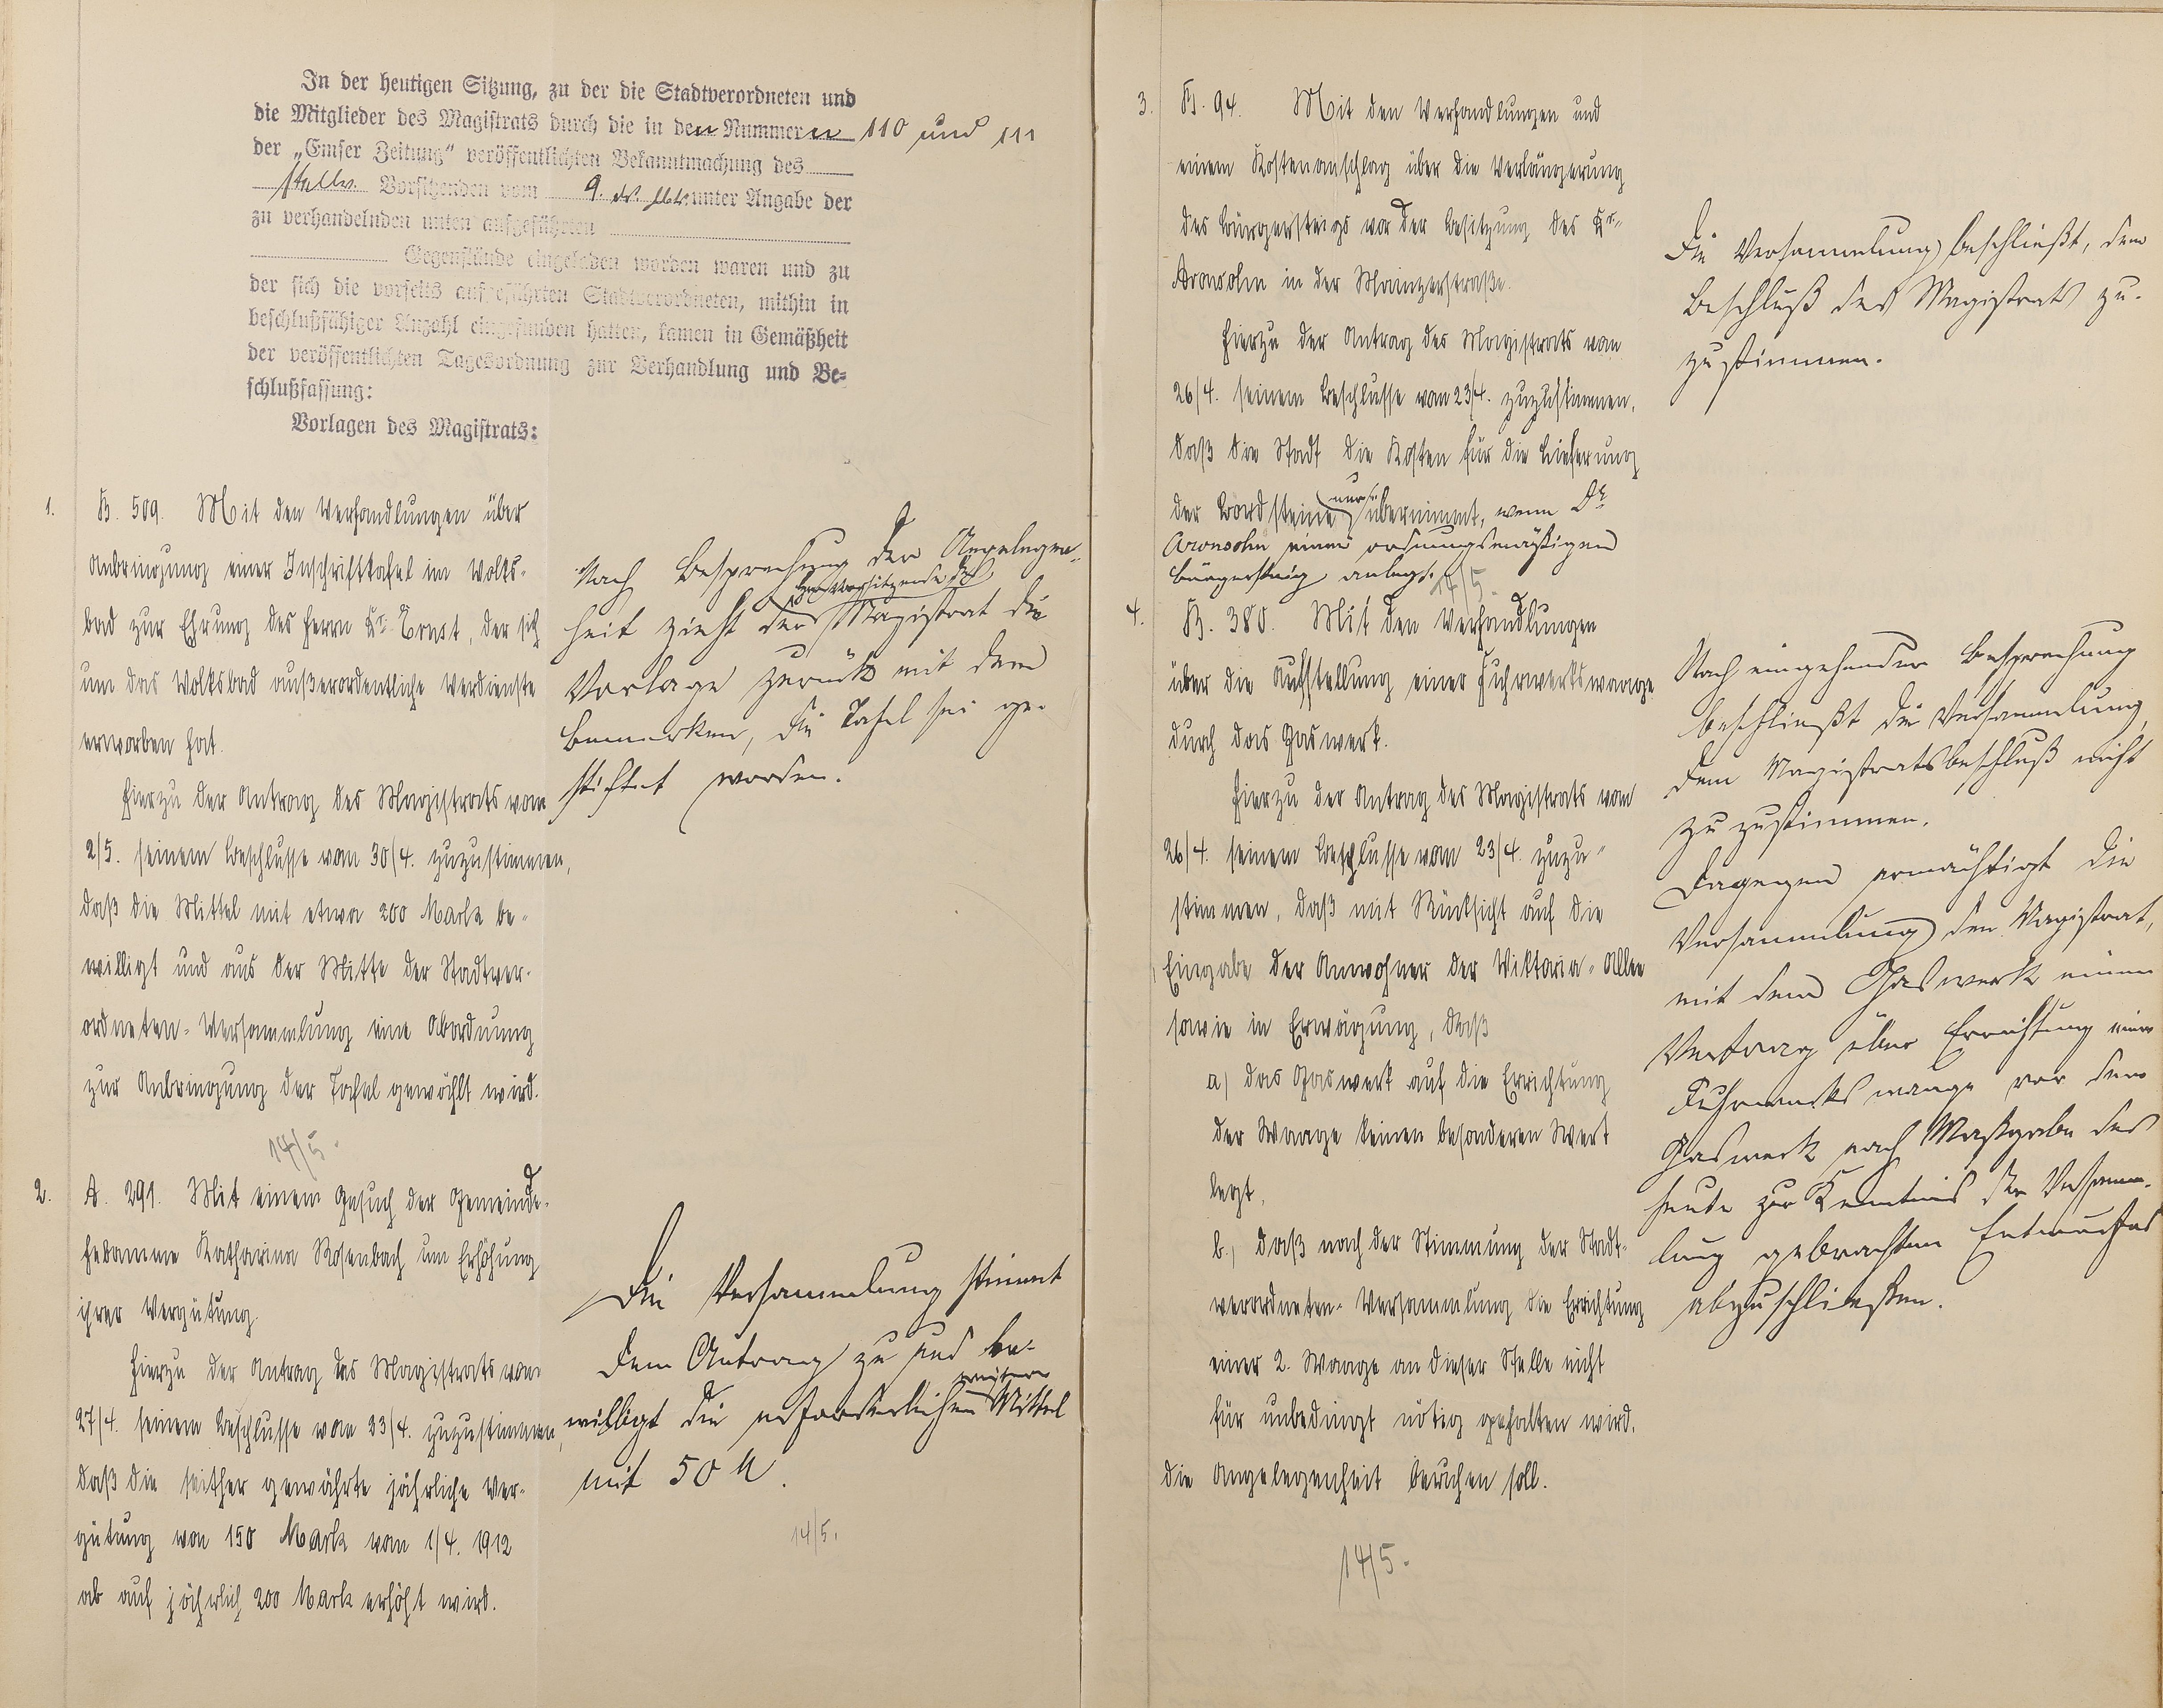 In der heutigen Sitzung, zu der die Stadtverordneten und
die Mitglieder des Magistrats durch die in den Nummern 110 und 111
der „Emser Zeitung“ veröffentlichten Bekanntmachung des
stellv. Vorsitzenden vom 9. ds. Mts. unter Angabe der
zu verhandelnden unten aufgeführten
Gegenstände eingeladen worden waren und zu
der sich die vorseits aufgeführten Stadtverordneten, mithin in
beschlußfähiger Anzahl eingefunden hatten, kamen in Gemäßheit
der veröffentlichten Tagesordnung zur Verhandlung und Be-
schlußfassung:
Vorlagen des Magistrats:
1. B. 509. Mit den Verhandlungen über
Anbringung einer Inschrifttafel im Volks-
bad zur Ehrung des Herrn Dr. Ernst, der sich
um das Volksbad außerordentliche Verdienste
erworben hat.
Hierzu der Antrag des Magistrats vom
2/5. seinem Beschlusse vom 30/4. zuzustimmen,
daß die Mittel mit etwa 200 Mark be-
willigt und aus der Mitte der Stadtver-
ordneten-Versammlung eine Abordnung
zur Anbringung der Tafel gewählt wird.
14/5.
Nach Besprechung der Angelegen-
heit zieht der Vorsitzende des Magistrat die
Vorlage zurück mit dem
Bemerken, die Tafel sei ge-
stiftet worden.
2. A. 291. Mit einem Gesuch der Gemeinde-
hebamme Katharina Rosenbach um Erhöhung
ihrer Vergütung.
Hierzu der Antrag des Magistrats vom
27/4. seinem Beschlusse vom 23/4. zuzustimmen,
daß die seither gewährte jährliche Ver-
gütung von 150 Mark vom 1/4. 1912
ab auf jährlich 200 Mark erhöht wird.
Die Versammlung stimmt
dem Antrag zu und be-
willigt die erforderlichen weiteren Mittel
mit 50 M.
14/5.
3. B. 94. Mit den Verhandlungen und
einem Kostenanschlag über die Verlängerung
des Bürgersteigs vor der Besitzung des Dr.
Aronsohn in der Mainzerstraße.
Hierzu der Antrag des Magistrats vom
26/4. seinem Beschlusse vom 23/4. zuzustimmen,
daß die Stadt die Kosten für die Lieferung
der Bordsteine nur übernimmt, wenn Dr.
Aronsohn einen ordnungsmäßigen
Bürgersteig anlegt.
14/5.
Die Versammlung beschließt, dem
Beschluß des Magistrats zu-
zustimmen.
4. B. 380. Mit den Verhandlungen
über die Aufstellung einer Fuhrwerkswaage
durch das Gaswerk.
Hierzu der Antrag des Magistrats vom
26/4. seinem Beschlusse vom 23/4. zuzu-
stimmen, daß mit Rücksicht auf die
Eingabe der Anwohner der Viktoria-Allee
sowie in Erwägung, daß
a) das Gaswerk auf die Errichtung
der Waage keinen besonderen Wert
legt,
b.) daß nach der Stimmung der Stadt-
verordneten-Versammlung die Errichtung
einer 2. Waage an dieser Stelle nicht
für unbedingt nötig gehalten wird.
die Angelegenheit beruhen soll.
14/5.
Nach eingehender Besprechung
beschließt die Versammlung,
dem Magistratsbeschluß nicht
zuzustimmen.
Dagegen ermächtigt die
Versammlung den Magistrat,
mit dem Gaswerk einen
Vertrag über Errichtung einer
Fuhrwerkswaage vor dem
Gaswerk nach Maßgabe des
heute zur Kenntnis der Versamm-
lung gebrachten Entwurfes
abzuschließen.